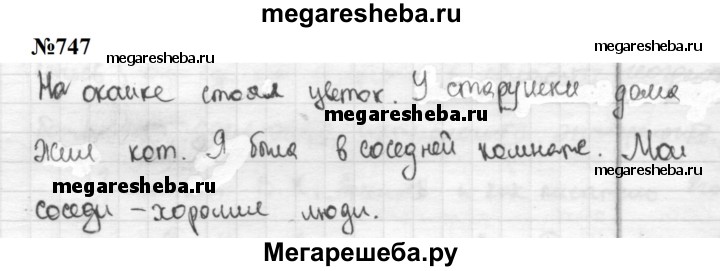 megaresheba.ru
№747
megaresheba.ru megaresheba.ru
На окошке стоял цветок. У старушки дома
megaresheba.ru
жил кот. Я была в соседней комнате. Мои
megaresheba.ru megaresheba.ru
соседи – хорошие люди.
Мегарешеба.ру